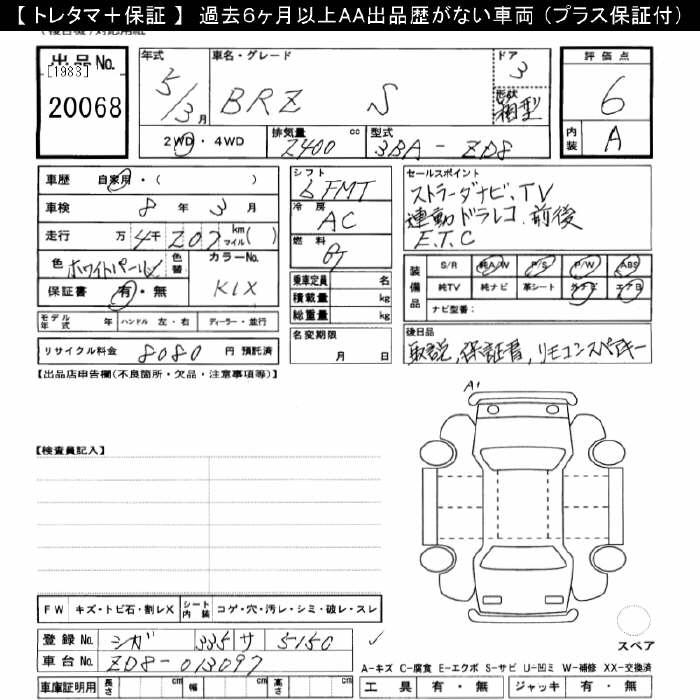 【 トレタマ＋保証 】 過去６ヶ月以上AA出品歴がない車両（プラス保証付）
出品No.
[1983]
20068
年式
5/3月
車名・グレード
BRZ S
ドア
3
形状
箱型
評価点
6
内装
A
2WD・4WD
排気量 2400 cc
型式 3BA-ZD8
車歴 自家用・( )
車検 8年 3月
走行 万 4千 207 km マイル( )
色 ホワイトパール 色替
カラーNo.
K1X
保証書 有・無
モデル年式 年 ハンドル 左・右 ディーラー・並行
リサイクル料金 8080 円 預託済
シフト
6FMT
冷房
AC
燃料
乗車定員 名
積載量 kg
総重量 kg
名変期限
月 日
セールスポイント
ストラーダナビ、TV
連動ドラレコ 前後
E.T.C
装備品
S/R 純A/W P/S P/W ABS
純TV 純ナビ 革シート 外ナビ エアB
ナビ型番:
後日品
取説、保証書、リモコンスペアキー
【出品店申告欄(不良箇所・欠品・注意事項等)】
A1
【検査員記入】
FW キズ・トビ石・割レX シート内装 コゲ・穴・汚レ・シミ・破レ・スレ
登録No. シガ 335 サ 5150
車台No. ZD8-013097
スペア
A-キズ C-腐食 E-エクボ S-サビ U-凹ミ W-補修 XX-交換済
車庫証明用 長さ cm 幅 cm 高さ cm
工具 有・無 ジャッキ 有・無